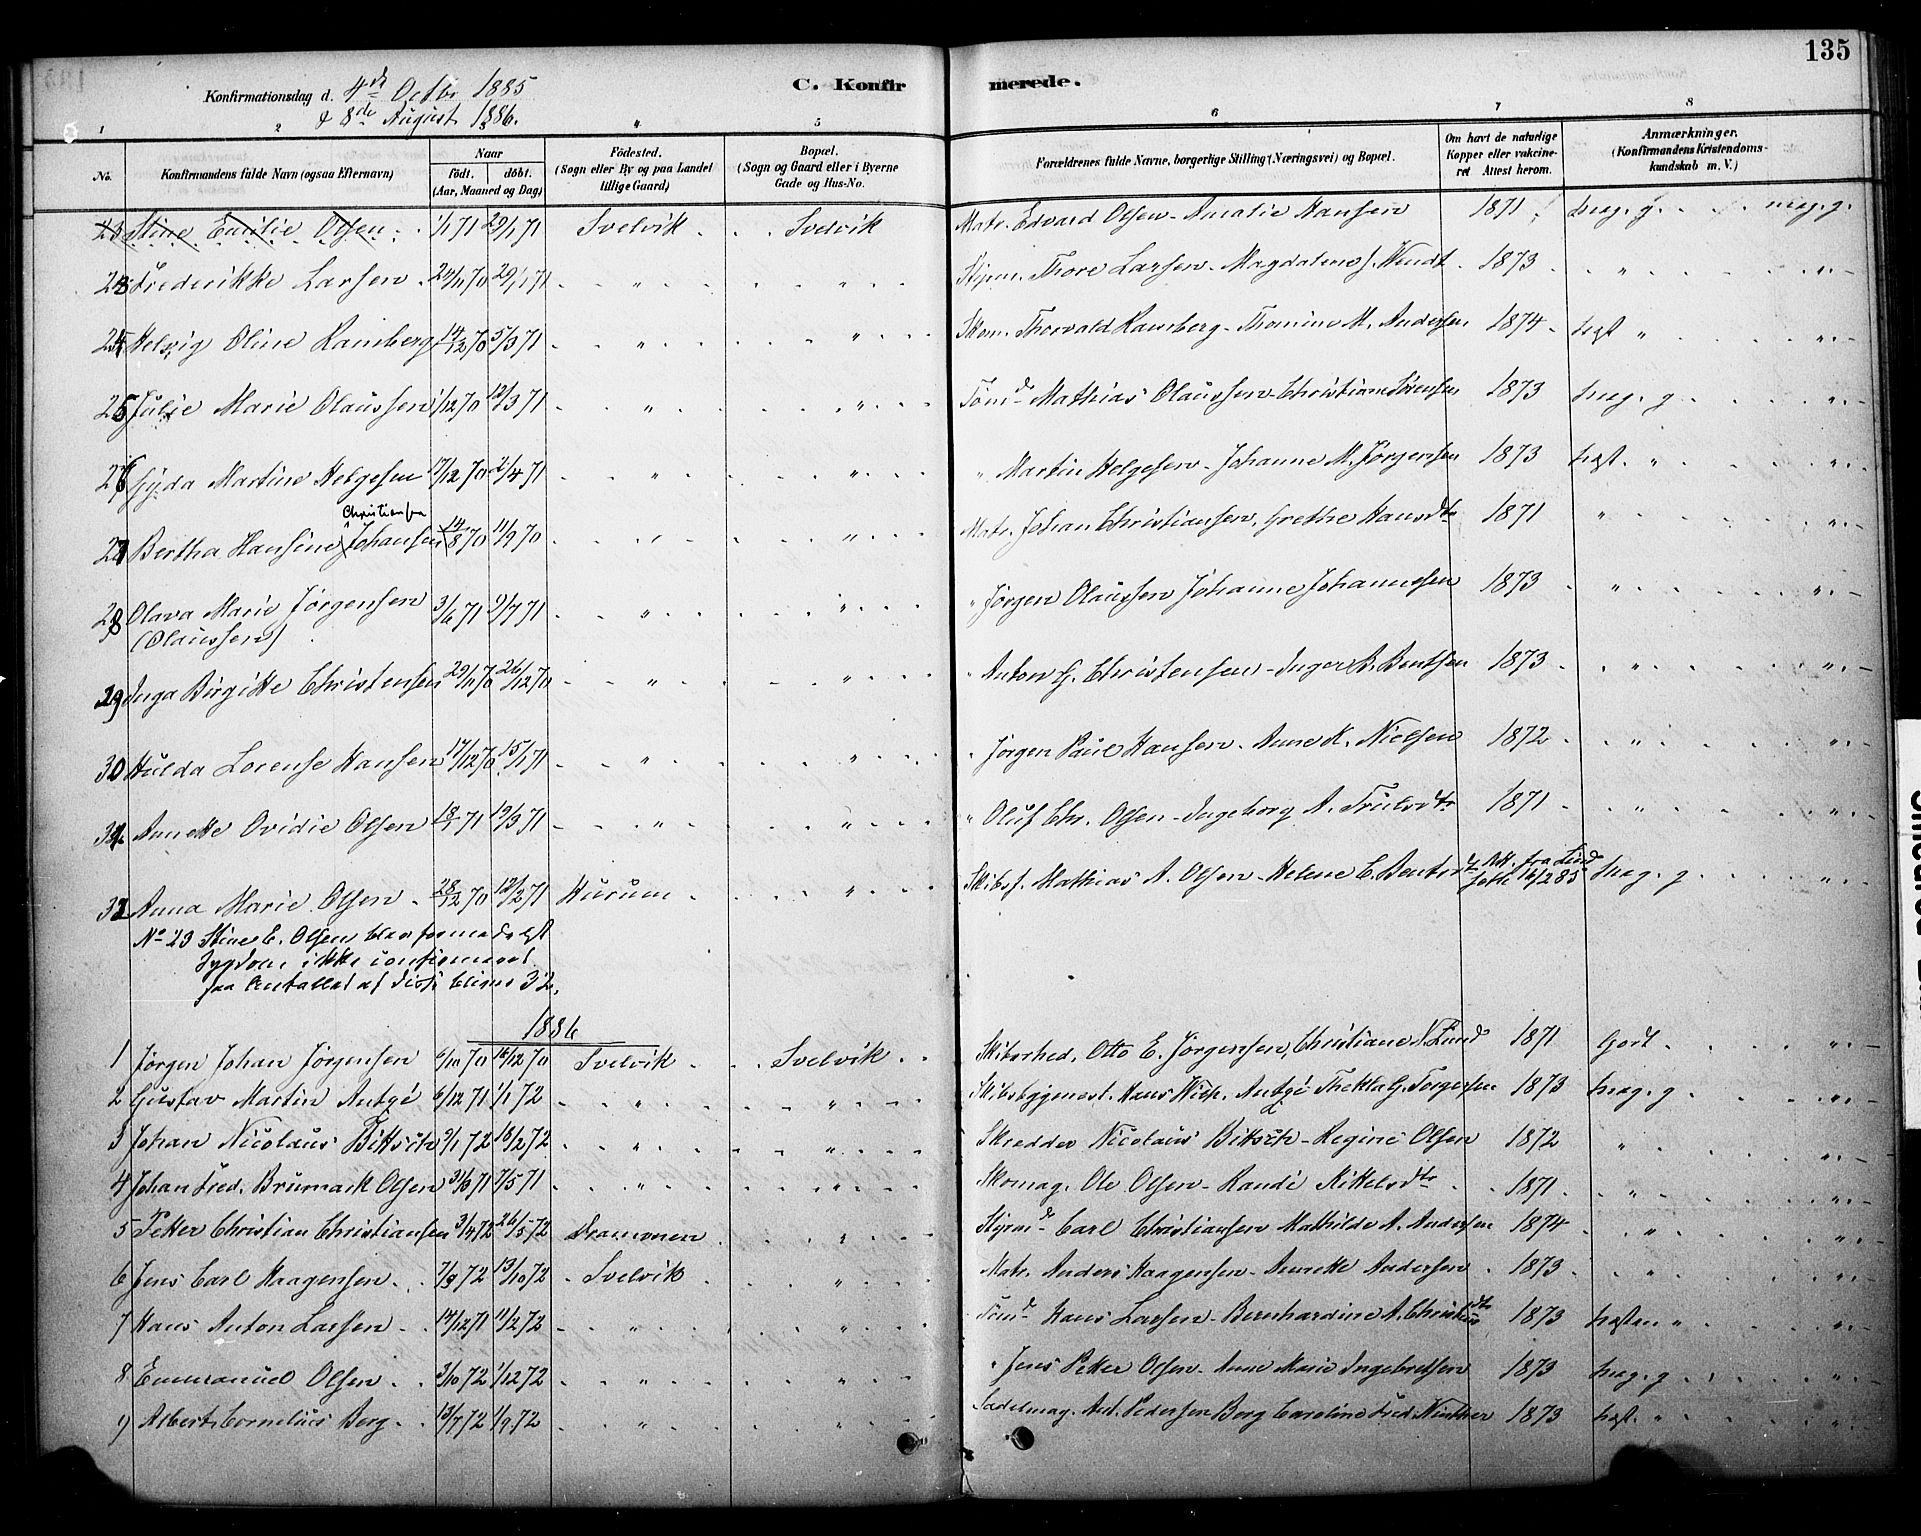 135
Konfirmationsdag d. 4de Octbr 1885
& 8de August 1886.
C. Konfirmerede.
1 2 3 4 5 6 7 8
No. Konfirmandens fulde Navn (ogsaa Efternavn) Naar födt. döbt. (Aar, Maaned og Dag) Födested. (Sogn eller By og paa Landet tillige Gaard) Bopæl. (Sogn og Gaard eller i Byerne Gade og Hus-No. Forældrenes fulde Navne, borgerlige Stilling (Næringsvei) og Bopæl. Om havt de naturlige Kopper eller vakcineret Attest herom. Anmærkninger. (Konfirmandens Kristendomskundskab m. V.)
23 Stine Emilie Olsen 1/1 71 29/1 71 Svelvik Svelvik Matr. Edvard Olsen - Amalie Hansen 1871 meg. g. meg. g.
Frederikke Larsen 24/11 70 29/1 71 " " Styrm. Thore Larsen - Magdalene J. Wendt 1873 " "
Helvig Oline Ramberg 14/12 70 5/3 71 " " Skom. Thorvald Ramberg - Thomine M. Andersen 1874 "  "
Julie Marie Olaussen 1/12 70 12/3 71 " " Tømd Mathias Olaussen - Christiane Sörensen 1873 meg. g "
Gyda Martine Helgesen 17/12 70 2/4 71 " " " Martin Helgesen - Johanne M. Jørgensen 1873 " "
27 Bertha Hansine Christiansen Johansen 14/8 70 11/9 70 " " Matr. Johan Christiansen, Grethe Hansdtr 1871 " "
28 Olava Marie Jørgensen 3/6 71 2/7 71 " " " Jørgen Olaussen Johanne Johannesen 1873 " "
(Olaussen)
29 Inga Birgitte Christensen 29/11 70 26/12 70 " " " Anton G. Christensen - Inger B. Bentsen 1873 " "
30 Hulda Lorense Hansen 17/12 70 15/1 71 " " " Jørgen Paul Hansen - Anne K. Nielsen 1872 " "
31 Annette Ovidie Olsen 18/1 71 19/3 71 " " " Oluf Chr. Olsen - Ingeborg A. Trulsdtr 1871 " "
32 Anna Marie Olsen 28/12 70 12/2 71 Hurum " Skibsf. Mathias A. Olsen - Helene E. Bentsdtr Att. fra 16/2 85 meg. g "
No 23 Stine E. Olsen blev formedelst
Sygdom ikke confirmeret
saa Antallet af disse bliver 32.
1886
1 Jørgen Johan Jørgensen 6/10 70 18/12 70 Svelvik Svelvik Skibsrhed. Otto E. Jørgensen, Christiane N. Lund 1871 Godt "
2 Gustav Martin Antzé 6/12 71 1/1 72 " " Skibsbygmest. Hans Nich. Antzé Thekla G. Torgersen 1873 meg. g "
3 Johan Nicolaus Bittsch 9/1 72 18/2 72 " " Skredder Nicolaus Bittsch - Regine Olsen 1872 " "
4 Johan Fred. Brumark Olsen 31/3 71 7/5 71 " " Skomag. Ole Olsen - Randi Kittelsdtr 1871 " "
5 Petter Christian Christiansen 3/4 72 26/5 72 Drammen " Styrmd Carl Christiansen Mathilde A. Andersen 1874 " "
6 Jens Carl Haagensen 7/9 72 13/10 72 Svelvik " Matr. Anders Haagensen - Annette Andersen 1873 " "
7 Hans Anton Larsen 14/12 71 11/2 72 " " Tømd Hans Larsen - Bernhardine A. Christensdtr 1873 næsten " "
8 Emmanuel Olsen 3/10 72 1/12 72 " " " Jens Petter Olsen - Anne Marie Ingebretsen 1873 meg. g "
9 Albert Cornelius Berg 13/7 72 1/9 72 " " Sadelmag. Ant. Pedersen Berg Caroline Fred. Winther 1873 " "